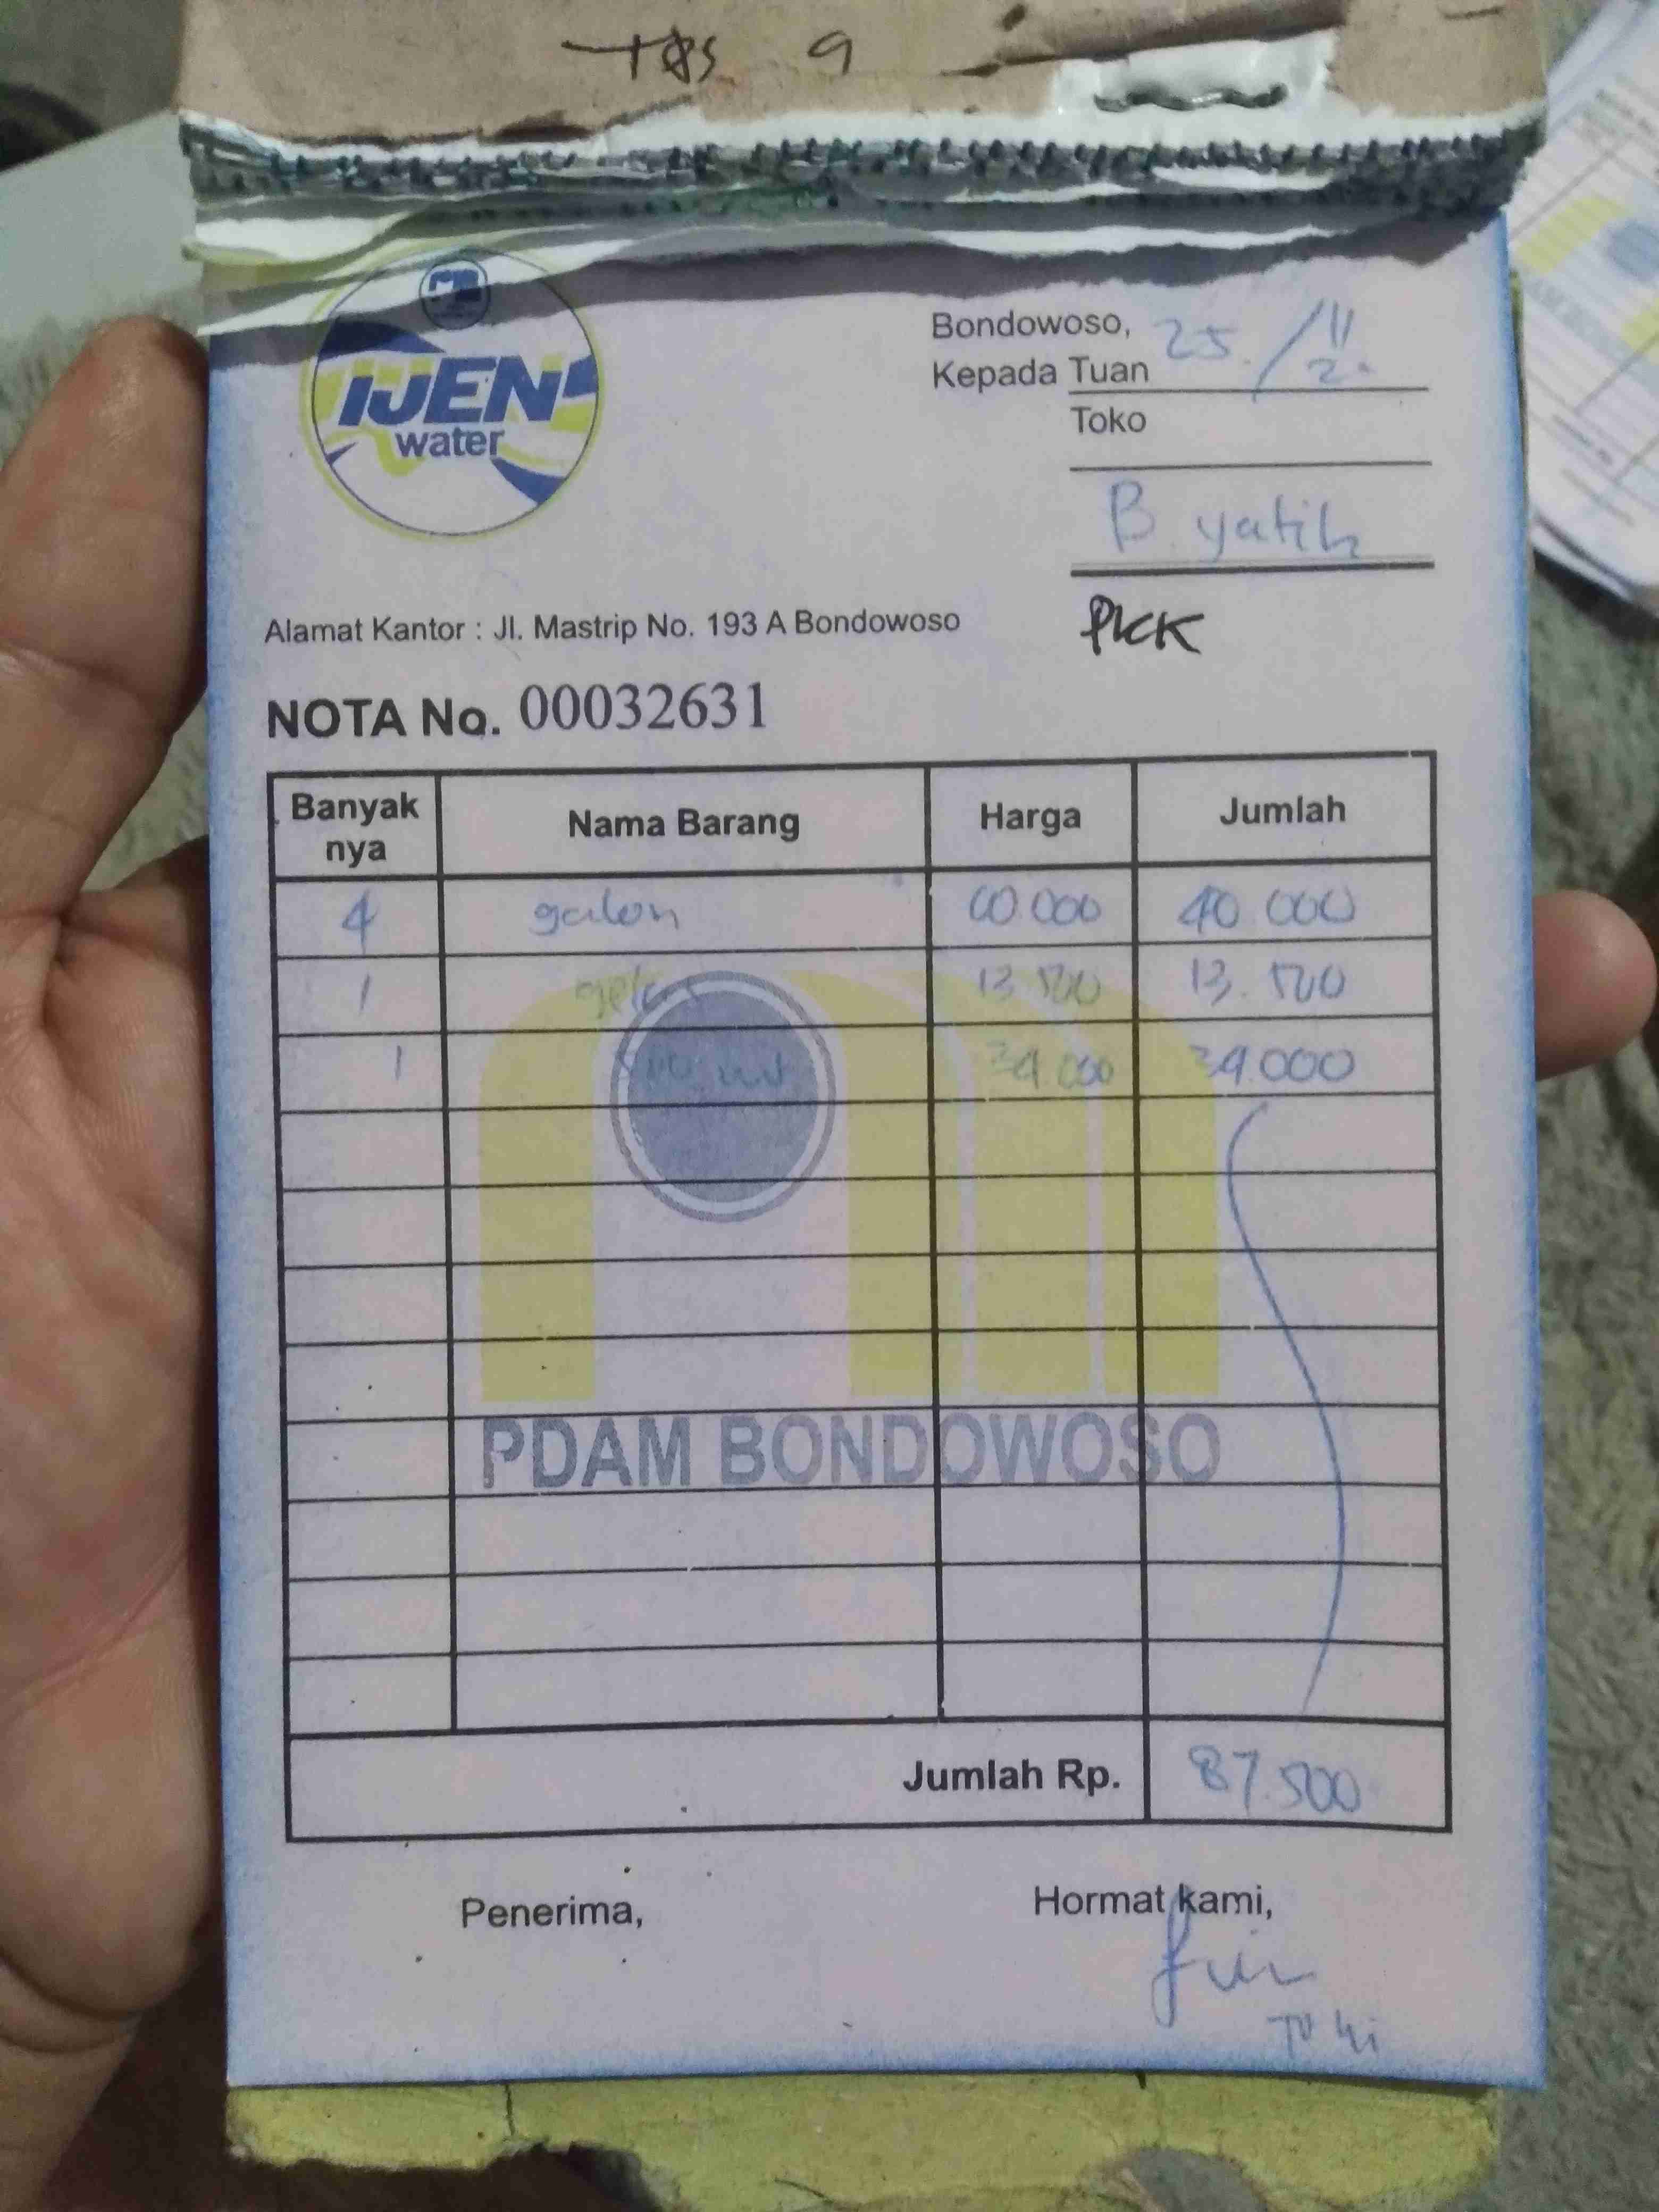 IJEN
water
Bondowoso, 25/11
Kepada Tuan
Toko
B yatik
Alamat Kantor : Jl. Mastrip No. 193 A Bondowoso
PKK
NOTA No. 00032631
Banyak nya Nama Barang Harga Jumlah
4 galon 10.000 40.000
1 gelas 13.500 13.500
1 34.000 34.000
PDAM BONDOWOSO
Jumlah Rp. 87.500
Penerima, Hormat kami,